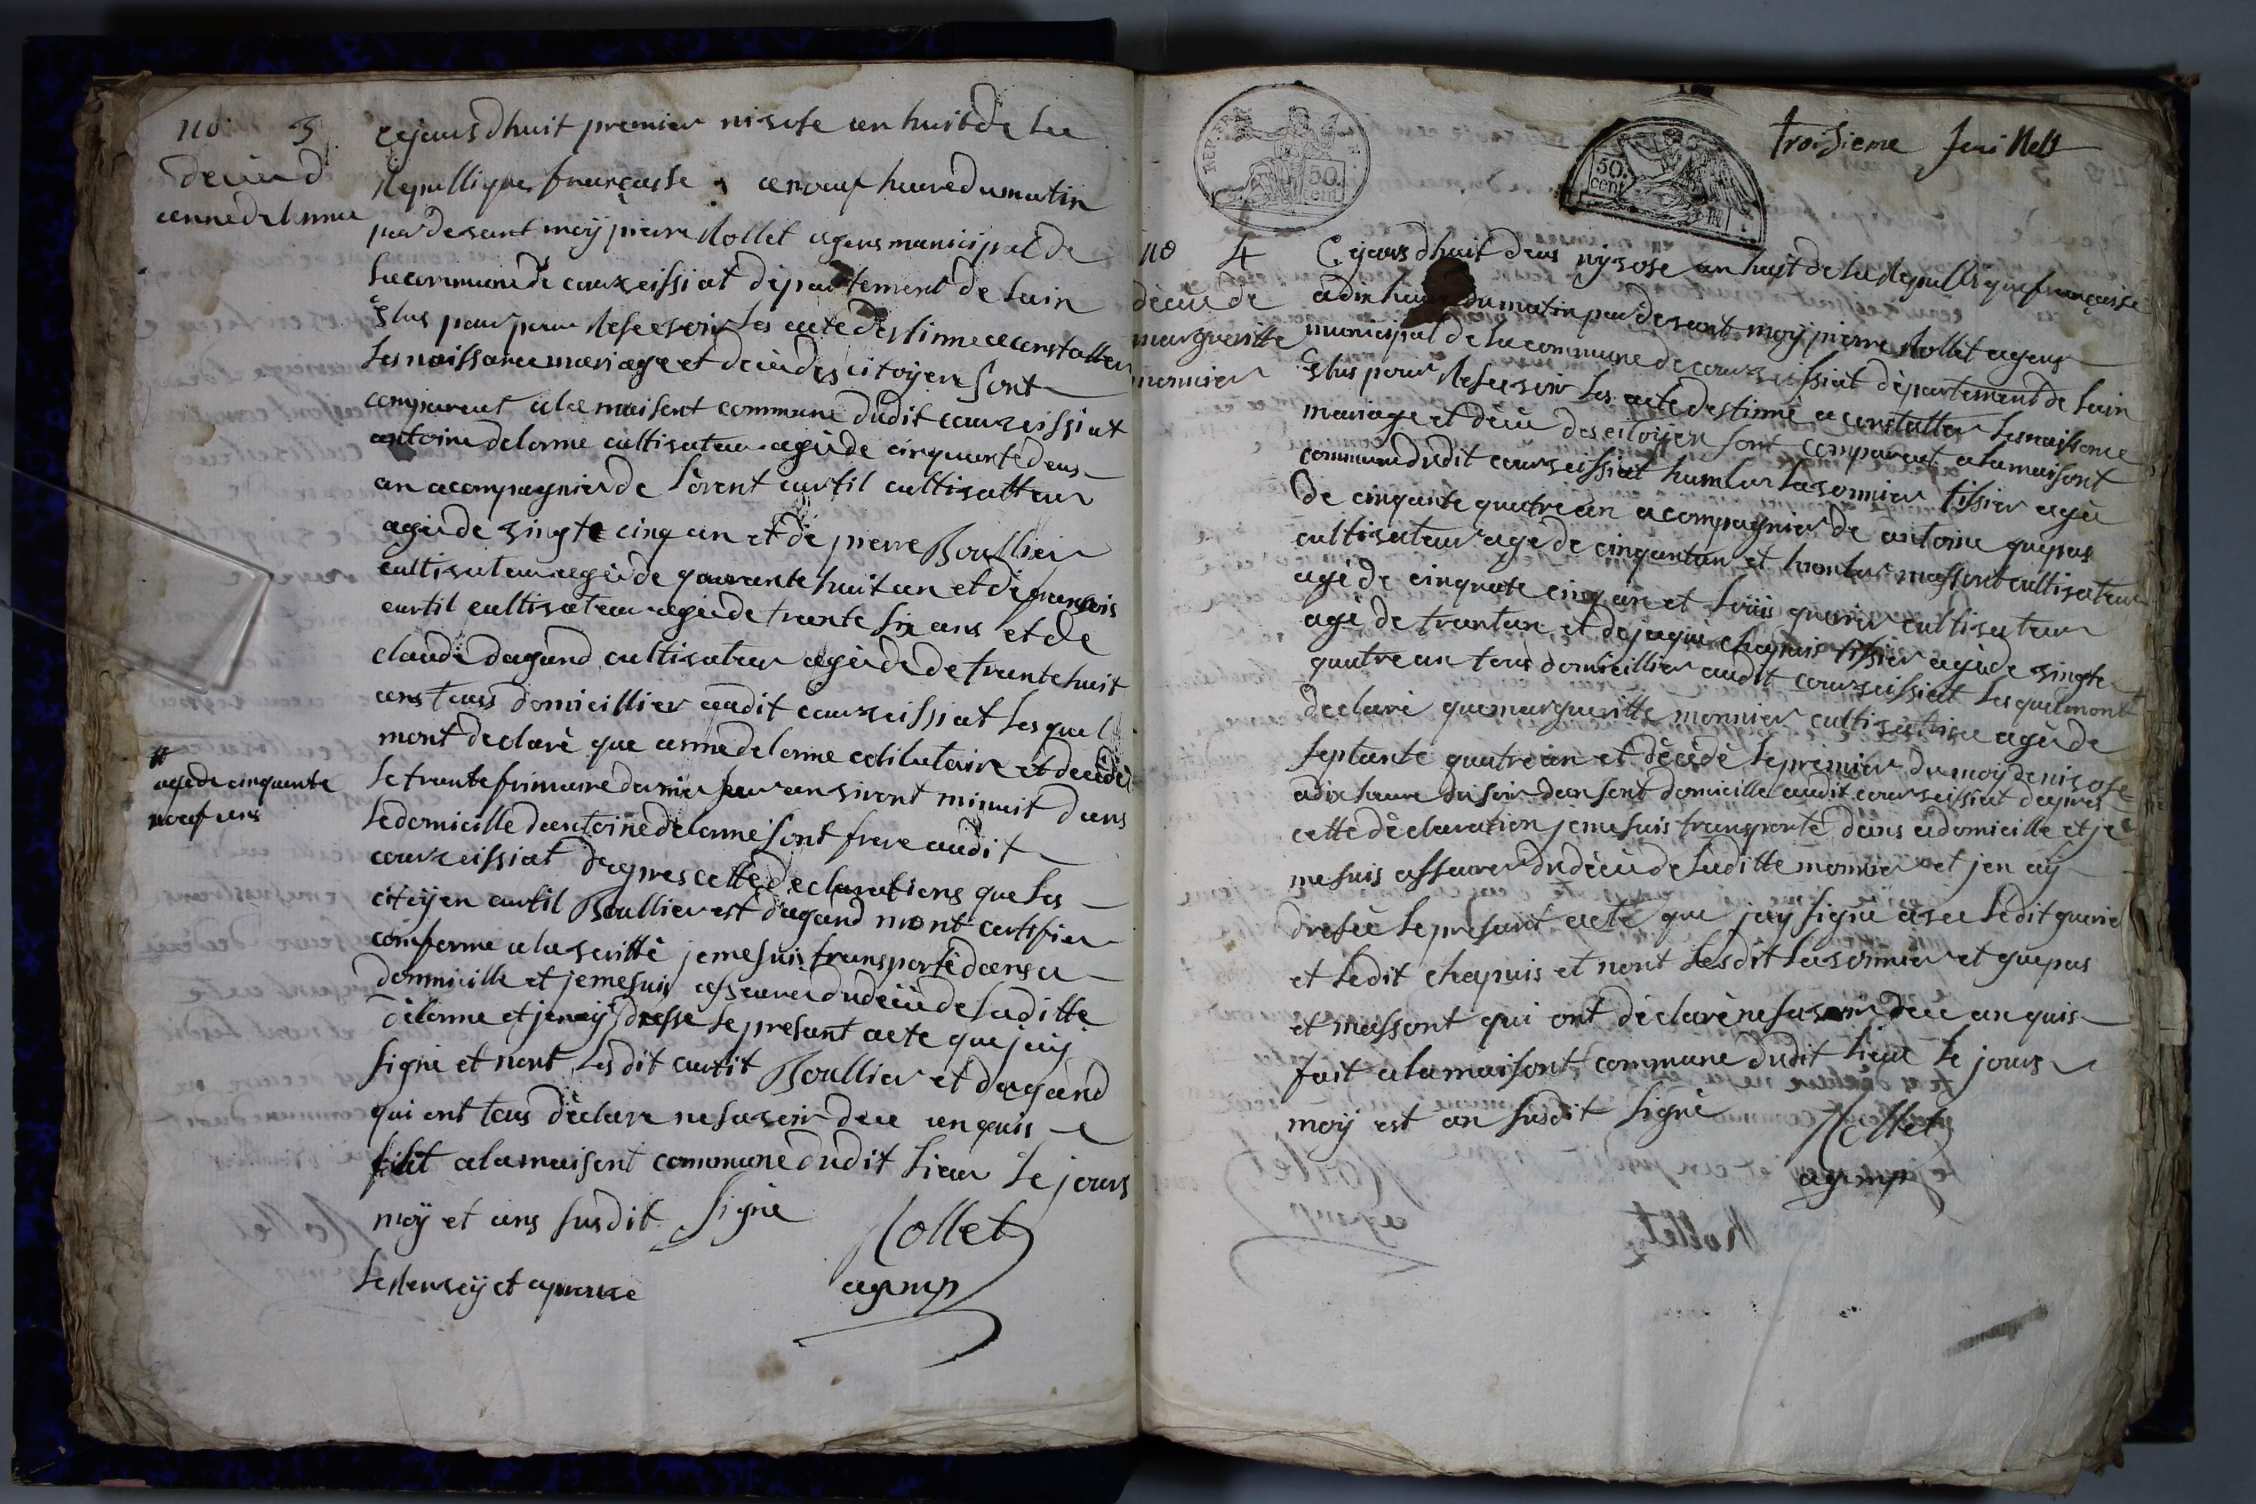 no 3
decée d
anne delorme
cejours dhuit premier nivose an huit de la
Republique française a neuf heure du matin
par devant moÿ pierre Rollet agens municipal de
la commune de courzeissiat département de lain
Elus pour pour Resesevoir les acte destinne a constatter
les naissance mariage et decée des citoÿen sont
comparut a la maisont commune dudit courzeissiat
antoine delorme cultivateur agée de cinquante deus
an acompagnier de lorent curtil cultivatteur
agée de vingte cinq an et de pierre Boullier
cultivateur agée de quarante huit an et de françois
curtil cultivateur agée de trante six ans et de
claude dagand cultivateur agée de de trante huit
ans tous domicillier audit courzeissiat lesquel
mont declaré que anne delorme celibataire et decedé
#
agée de cinquante
noeuf ans
le trante frimaire dernier sur anviront minuit dans
le domicille dantoine delorme sont frere audit
courzeissiat dapres cette declarations que les
citoÿen curtil Boullier et dagand mont certifier
comforme a la veritté je me suis transporté dans ce
dommicille et je me suis asseurer du decée de laditte
delorme et jen aÿ dresse le presant acte que jaÿ
signé et nont lesdit curtit Boullier et dagand
qui ont tous déclare ne savoir dece anquis
fait a la maisont commune dudit lieux le jours
moÿ et ans susdit signé Rollet
le Renvoÿ et aprouve
agmp
troisieme feuillets
REP. FRA.
50.
cent.
50.
cent.
no 4
décée de
margueritte
monnier
Cejours dhuit deus nyvose an huit de la Republique française
a dix heure du matin par devant moÿ pierre Rollet agens
municipal de la commune de courzeissiat département de lain
Elus pour Resesevoir les acte destinné a constatter les naissance
mariage et décée des citoÿen sont comparut a la maisont
commune dudit courzeissiat humber lavornier tissier agée
de cinqante quatre an acompagnier de antoine guepas
cultivateur age de cinqantan et humber massont cultivateur
agé de cinquate cinq an et louis guerie cultivateur
agé de trantan et de jaque chapuis tissier agée de vingte
quatre an tous domicillier audit courzeissiat lesquel mont
declaré que margueritte monnier cultivatrice agée de
septante quatre an et décédé le premier du moÿ de nivose
a dix heure du soir dan sont domicille audit courzeissiat dapres
cette déclaration je me suis transporté dans ce domicille et je
me suis asseurer du décée de laditte monnier et jen aÿ
dresée le presant acte que jay signé avec ledit guerie
et ledit chapuis et nont lesdit lavornier et guepas
et massont qui ont déclaré ne savoir dece anquis
fait a la maisont commune dudit lieux le jours
moÿ est an susdit signé Rollet
agmp